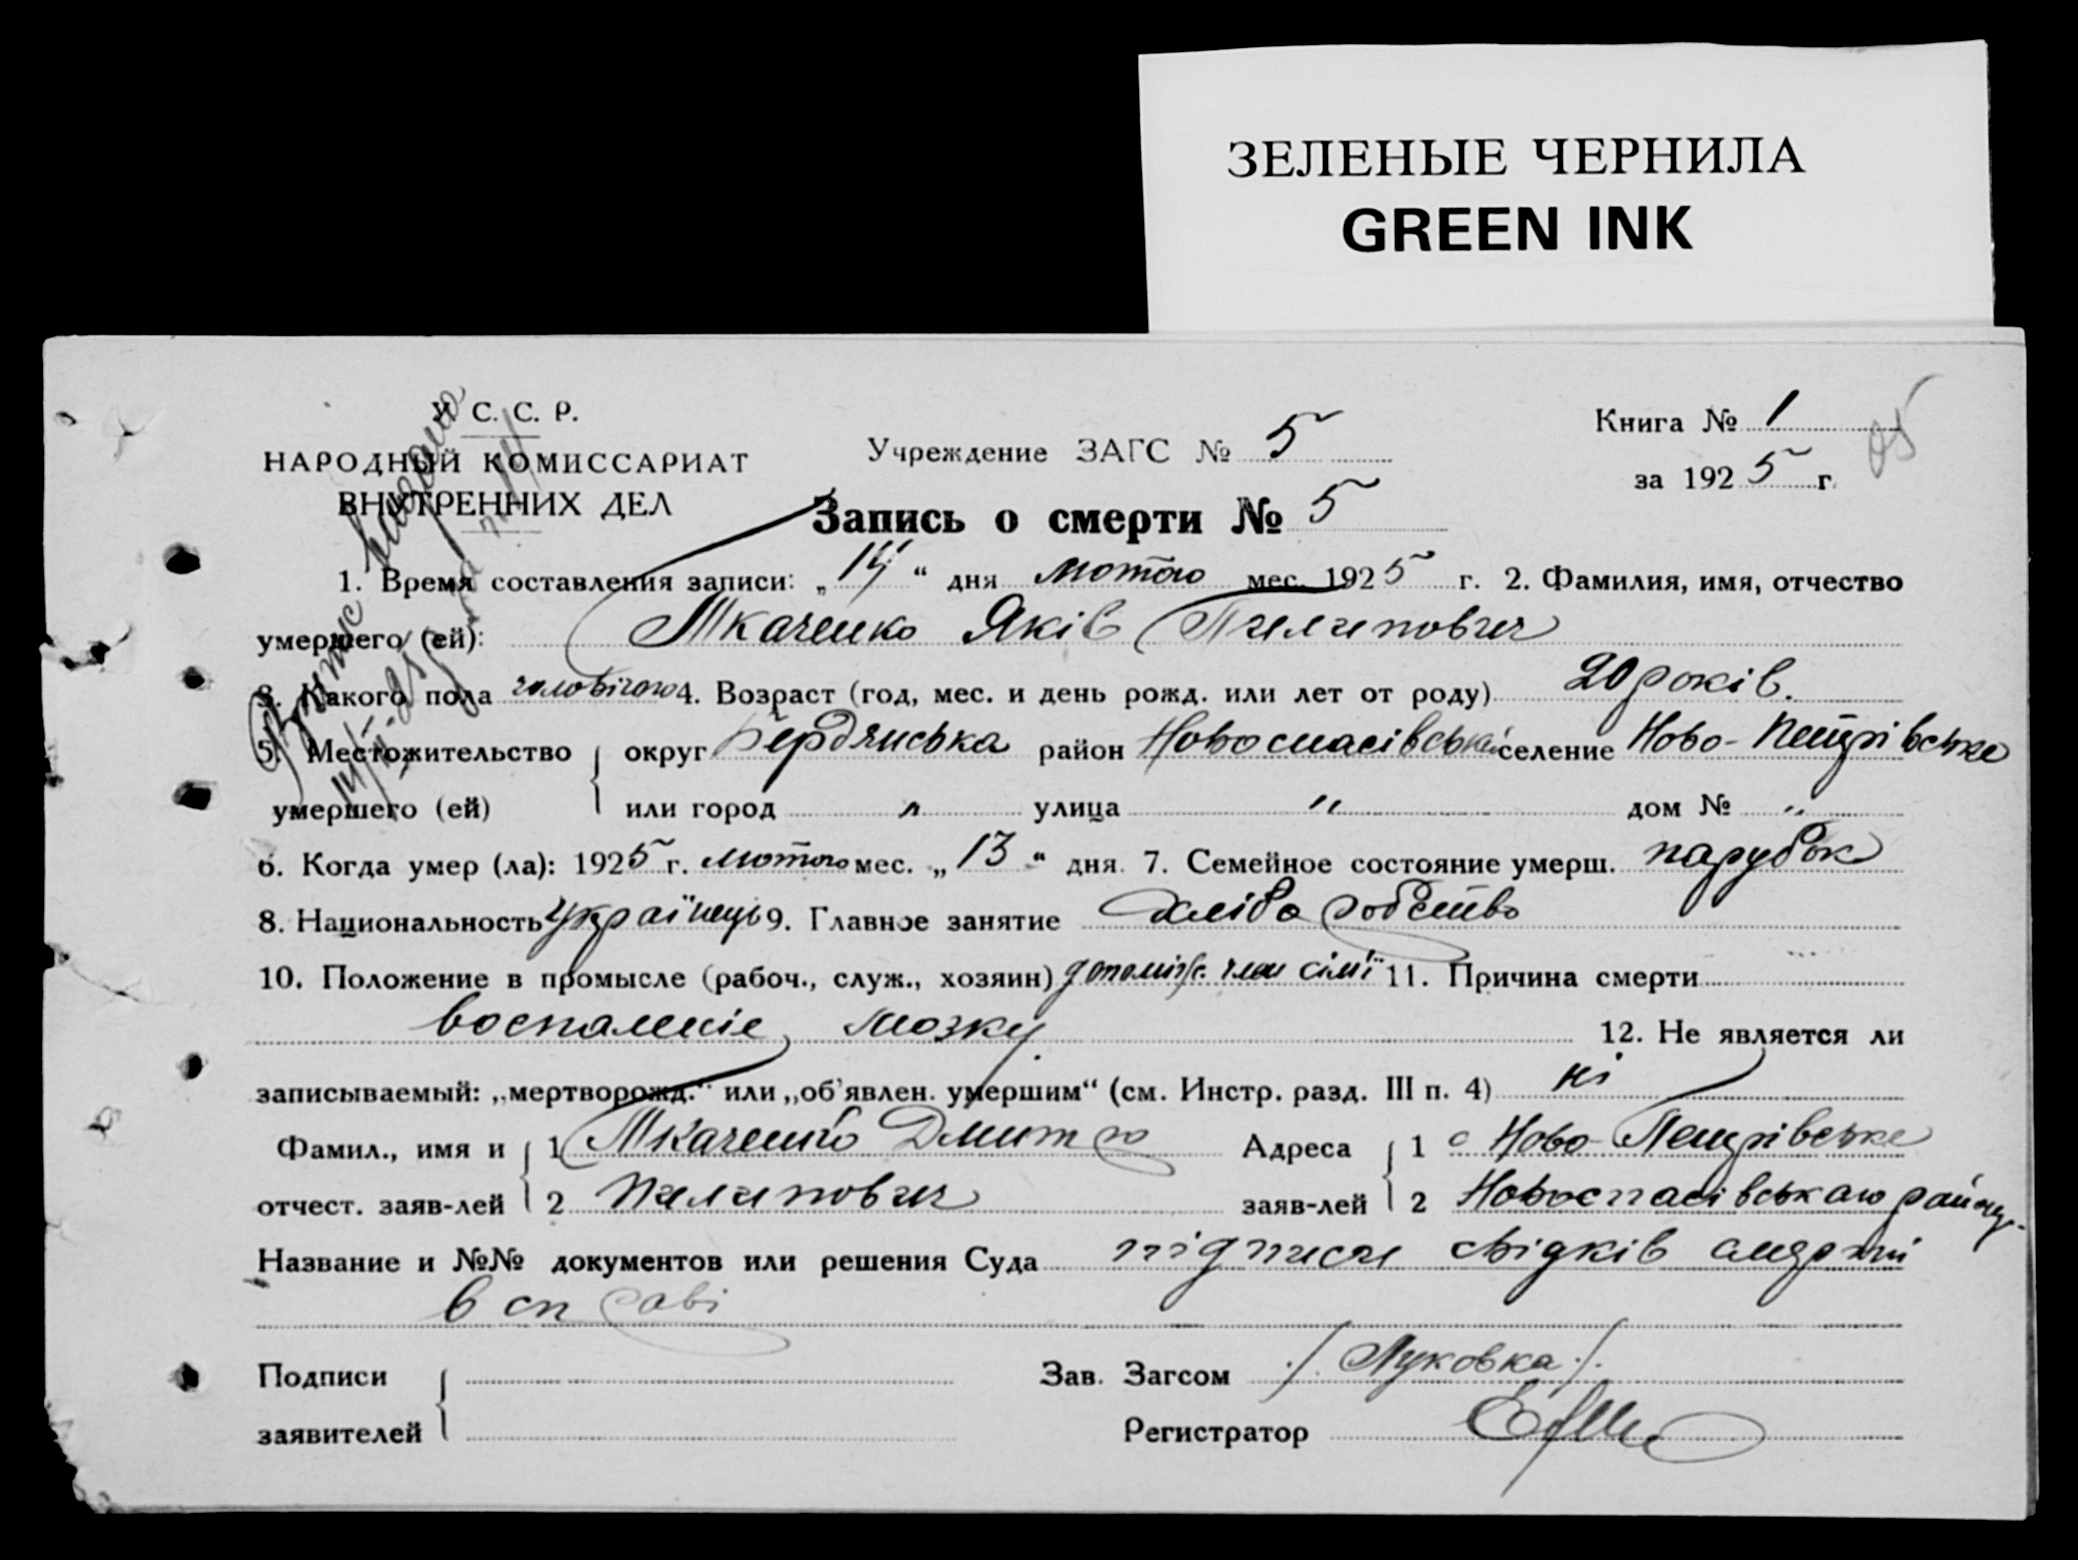 ЗЕЛЕНЫЕ ЧЕРНИЛА
GREEN INK
У С. С. Р.
НАРОДНЫЙ КОМИССАРИАТ
ВНУТРЕННИХ ДЕЛ
Учреждение ЗАГС № 5
Книга № 1
за 1925 г.
Запись о смерти № 5
1. Время составления записи: „14“ дня лютого мес. 1925 г. 2. Фамилия, имя, отчество
умершего (ей): Ткаченко Яків Пилипович
3. Какого пола чоловічого 4. Возраст (год, мес. и день рожд. или лет от роду) 20 років.
5. Местожительство округ Бердянська район Новоспасівський селение Ново-Петрівське
умершего (ей) или город „ улица „ дом № „
6. Когда умер (ла): 1925 г. лютого мес. „13“ дня. 7. Семейное состояние умерш. парубок
8. Национальность Українець 9. Главное занятие хліборобство
10. Положение в промысле (рабоч., служ., хозяин) допоміж. член сімї 11. Причина смерти
воспаленіе мозку. 12. Не является ли
записываемый: „мертворожд.“ или „об'явлен. умершим“ (см. Инстр. разд. III п. 4) ні
Фамил., имя и 1 Ткаченко Дмитро Адреса 1 с Ново-Петрівське
отчест. заяв-лей 2 Пилипович заяв-лей 2 Новоспасівського району.
Название и №№ документов или решения Суда підписи свідків смерти
в справі
Подписи Зав. Загсом /. Луковка ./.
заявителей Регистратор